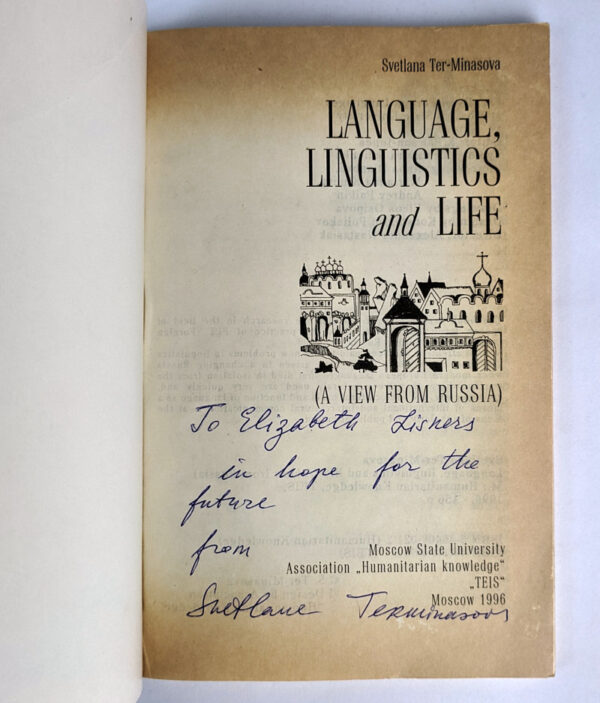 Svetlana Ter-Minasova
LANGUAGE,
LINGUISTICS
and LIFE
(A VIEW FROM RUSSIA)
To Elizabeth
in hope for the
future
from
Svetlane Terminasova
Moscow State University
Association „Humanitarian knowledge“
„TEIS“
Moscow 1996